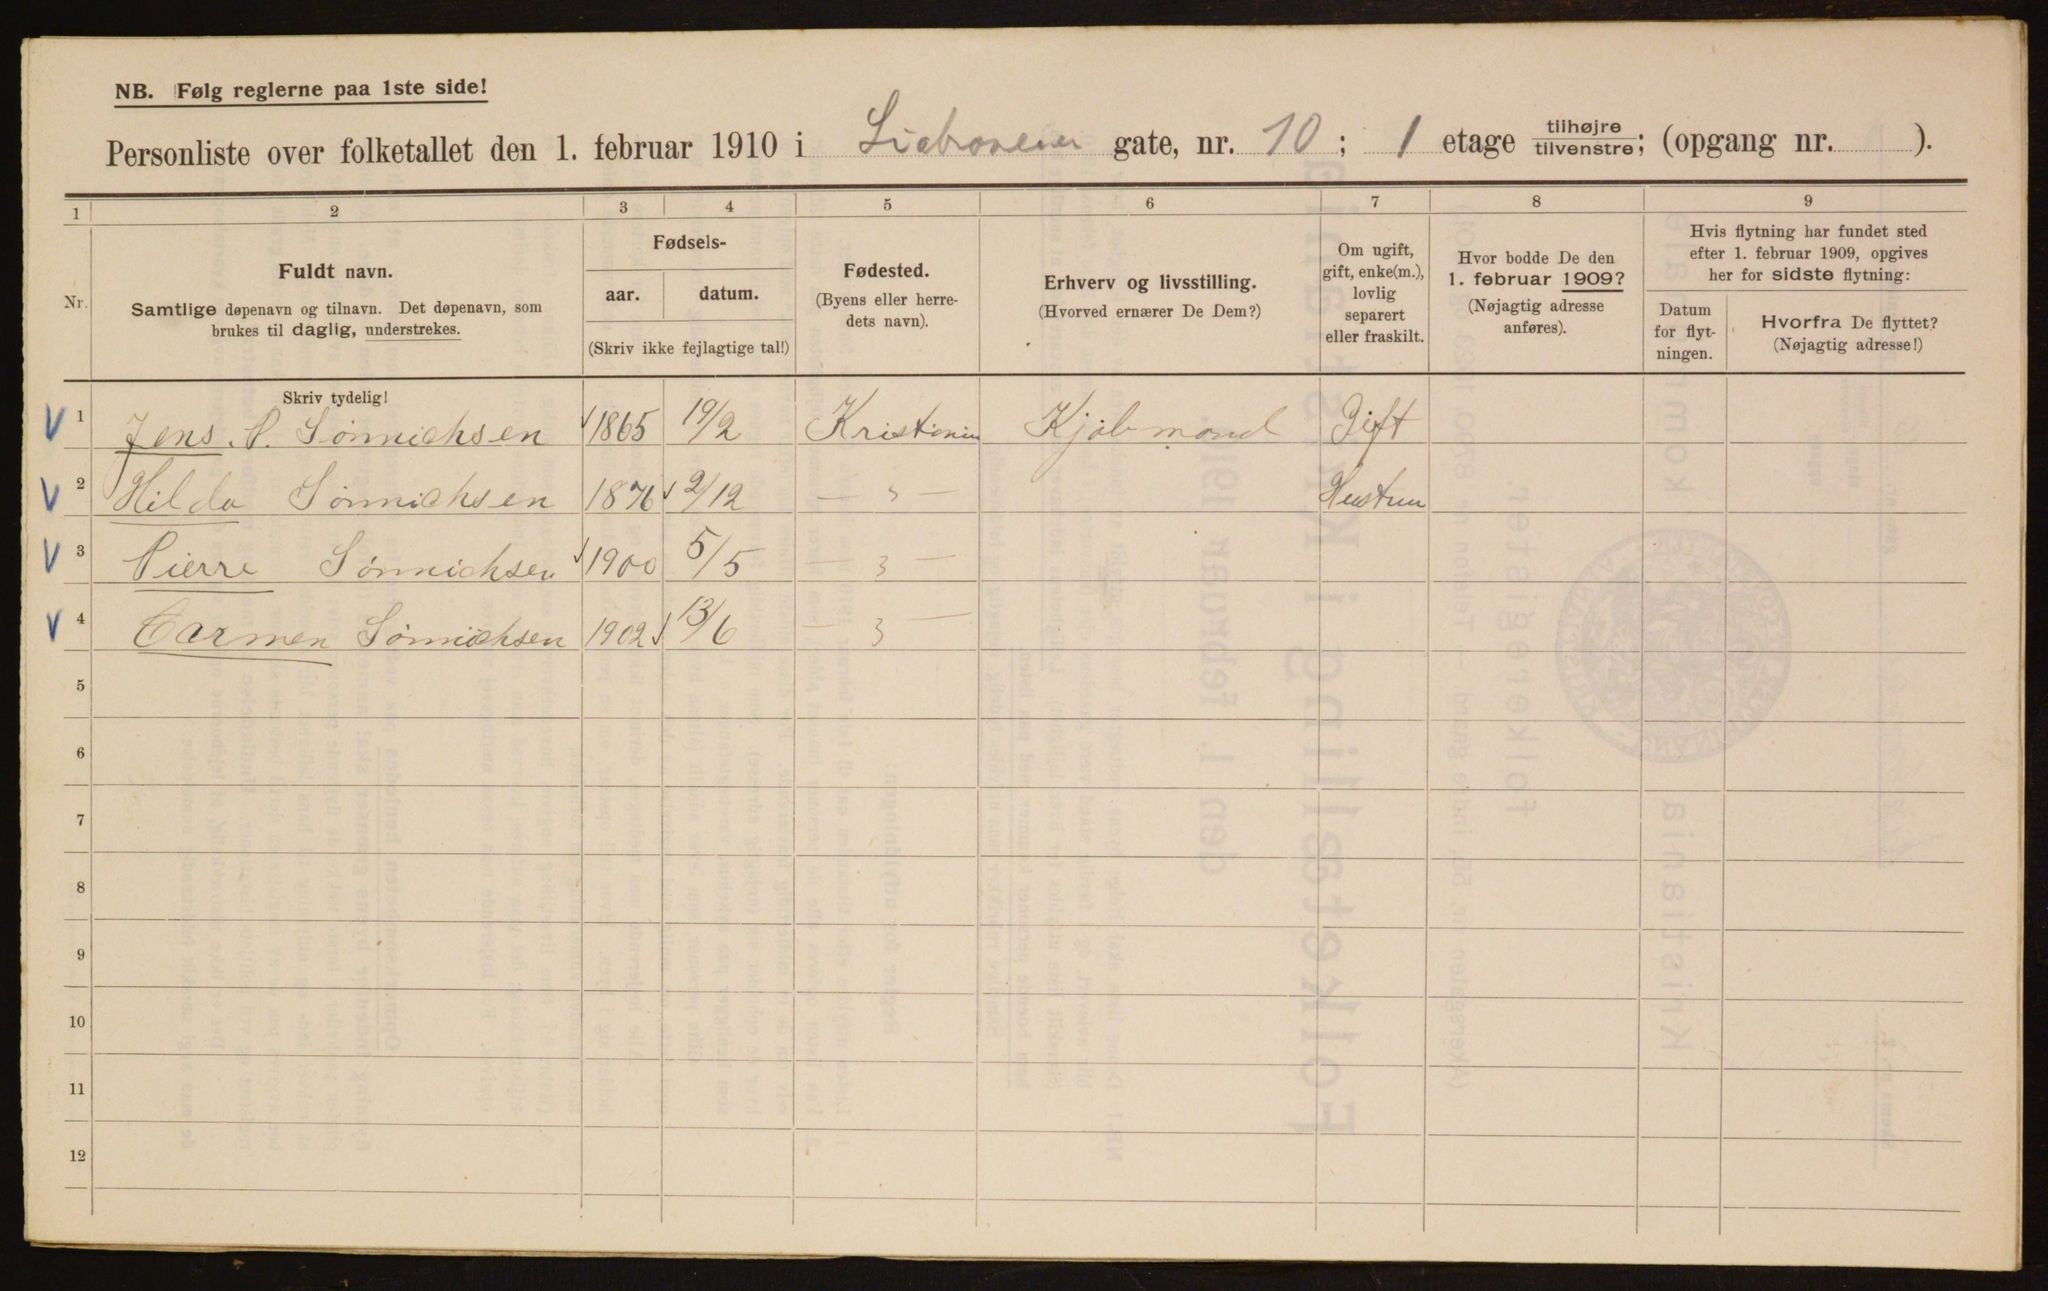 NB. Følg reglerne paa 1ste side!
Personliste over folketallet den 1. februar 1910 i gate, nr. 10; 1 etage tilhøjre tilvenstre; (opgang nr. ).
1 2 3 4 5 6 7 8 9
Nr.
Fuldt navn.
Samtlige døpenavn og tilnavn. Det døpenavn, som
brukes til daglig, understrekes.
Fødsels-
aar. datum.
(Skriv ikke fejlagtige tal!)
Fødested.
(Byens eller herre-
dets navn).
Erhverv og livsstilling.
(Hvorved ernærer De Dem?)
Om ugift,
gift, enke(m.),
lovlig
separert
eller fraskilt.
Hvor bodde De den
1. februar 1909?
(Nøjagtig adresse
anføres).
Hvis flytning har fundet sted
efter 1. februar 1909, opgives
her for sidste flytning:
Datum
for flyt-
ningen.
Hvorfra De flyttet?
(Nøjagtig adresse!)
Skriv tydelig!
1 Jens. P. Sønnichsen 1865 19/2 Kristiania Kjøbmand Gift
2 Hilda Sønnichsen 1876 2/12 — " — Hustru
3 Pierre Sønnichsen 1900 5/5 — " —
4 Carmen Sønnichsen 1902 13/6 — " —
5
6
7
8
9
10
11
12